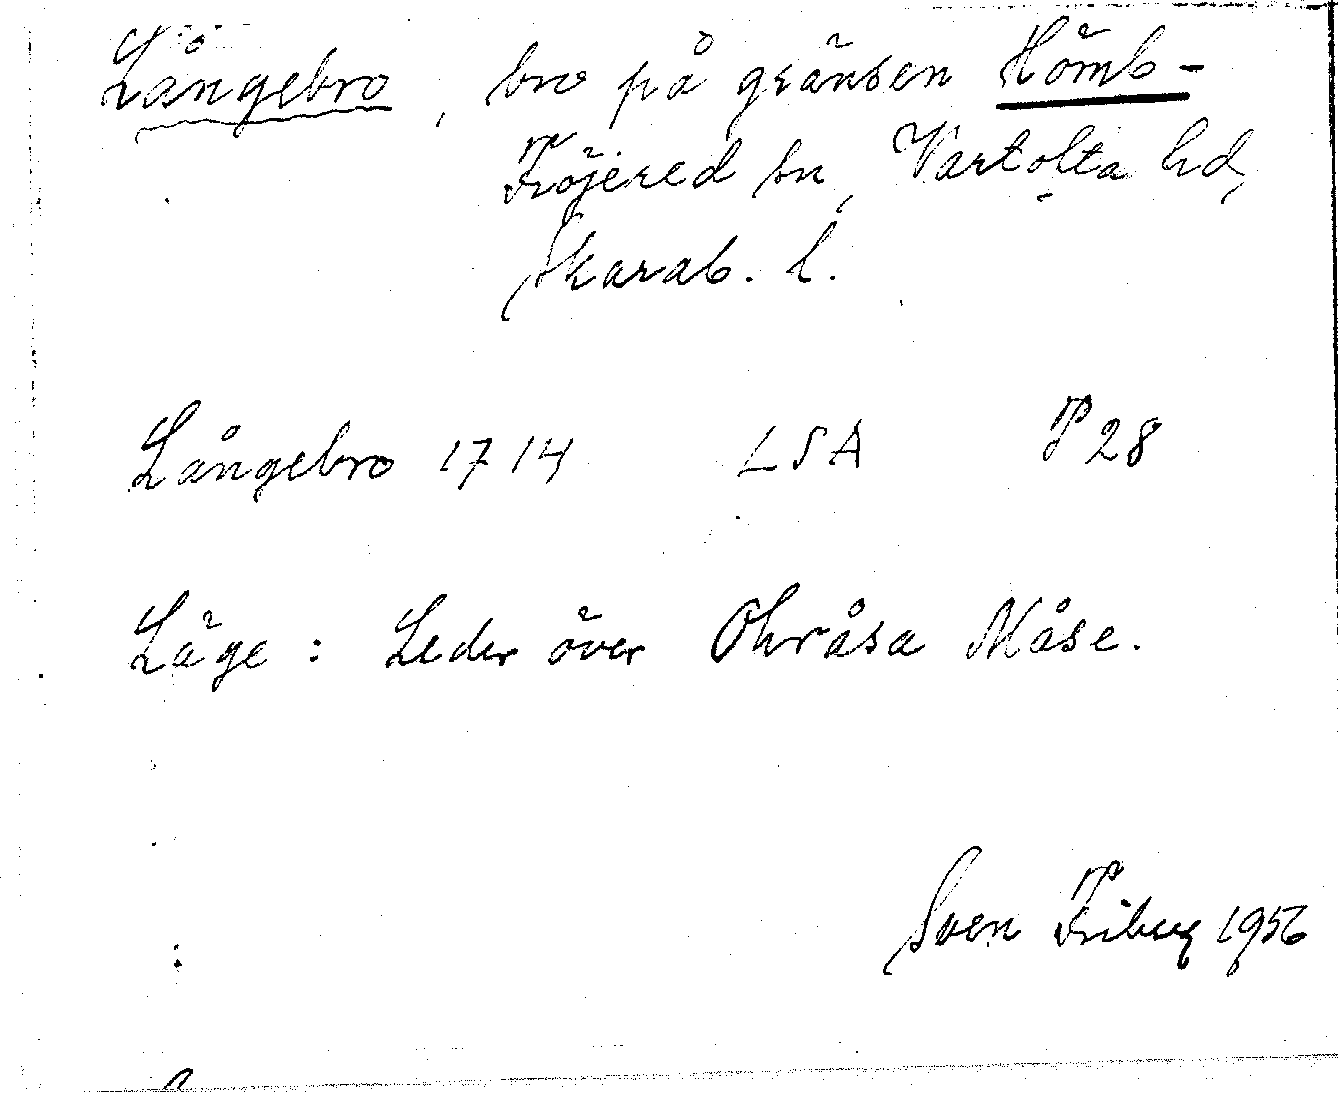 Långebro, bro på gränsen Hömb-
Fröjered sn, Vartofta hd,
Skarab. l.
Långebro 1714 LSA P 28
Läge: Leder över Ohråsa Måse.
Sven Friberg 1956